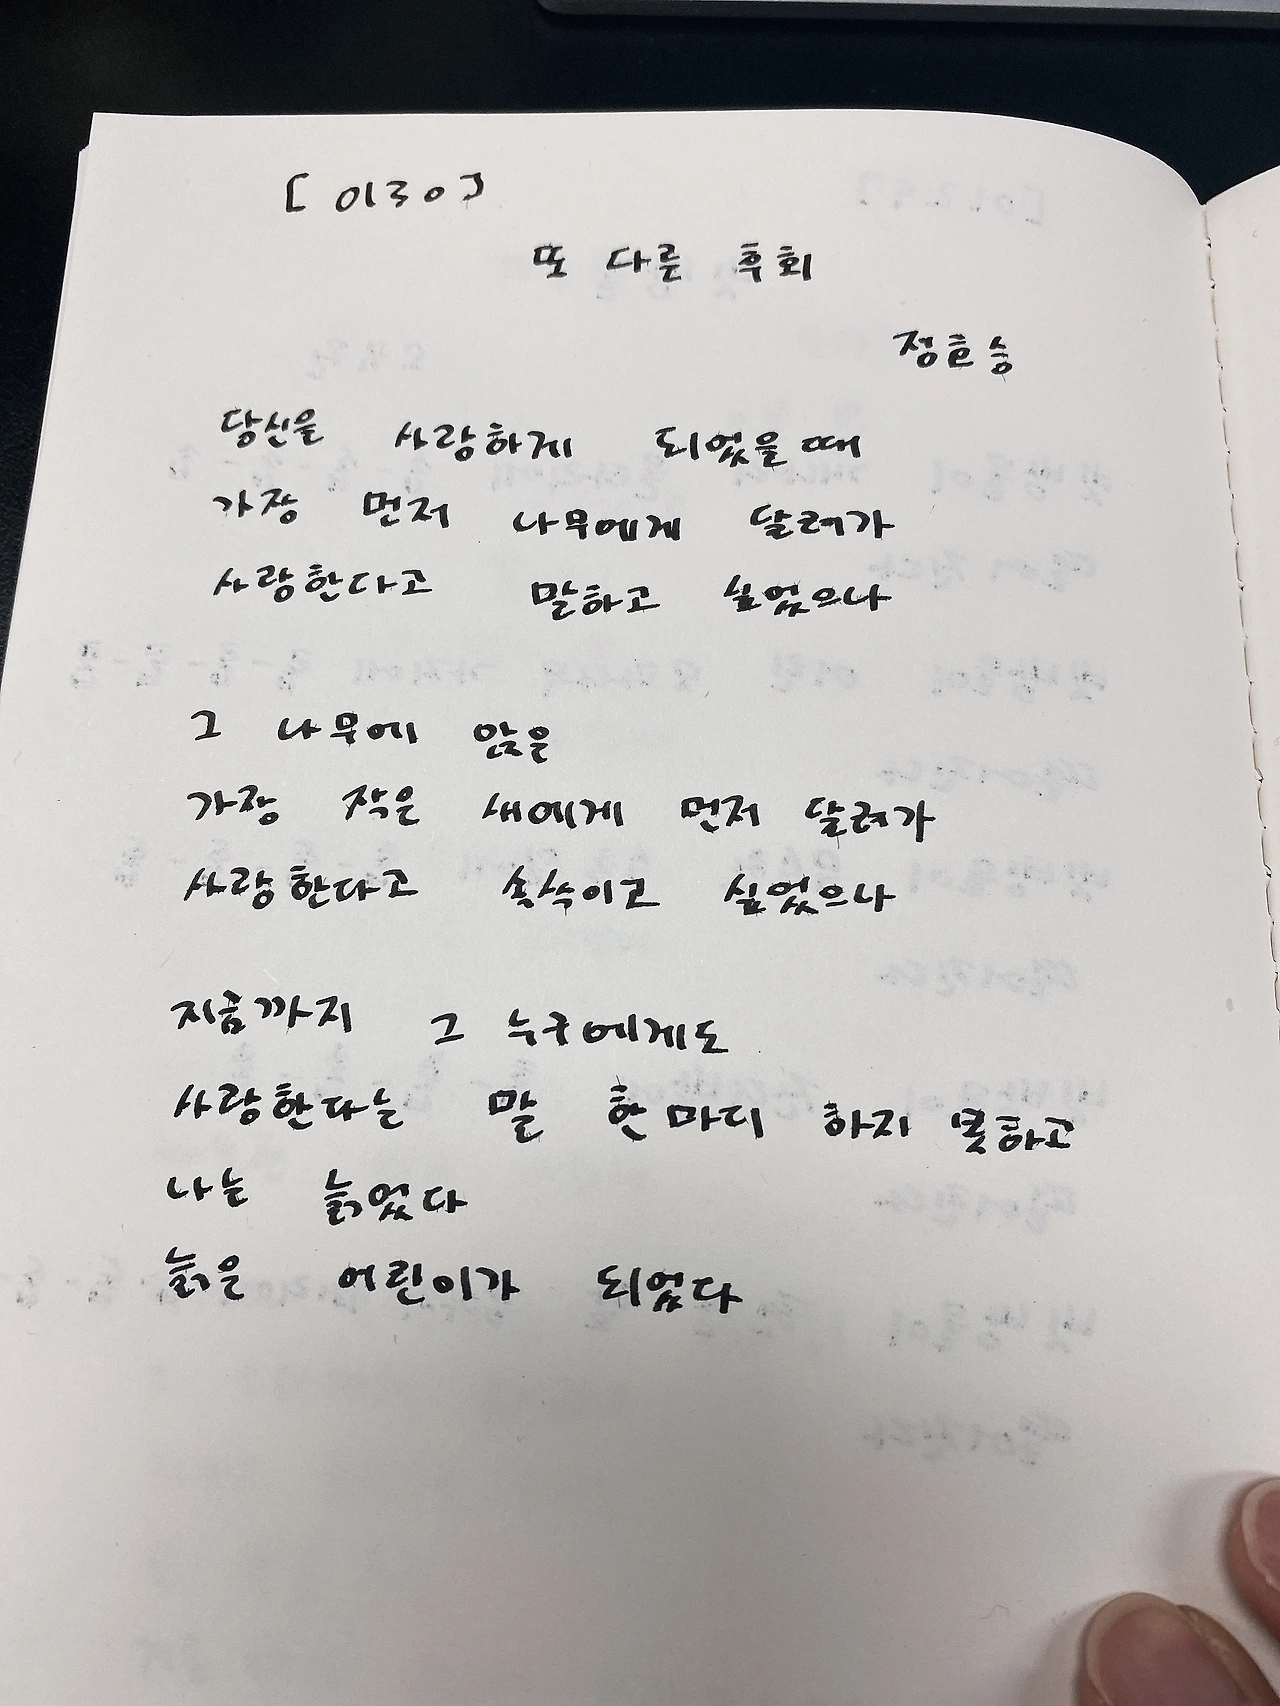 [0130]
또 다른 후회
정호승
당신을 사랑하게 되었을 때
가장 먼저 나무에게 달려가
사랑한다고 말하고 싶었으나
그 나무에 앉은
가장 작은 새에게 먼저 달려가
사랑한다고 속삭이고 싶었으나
지금까지 그 누구에게도
사랑한다는 말 한마디 하지 못하고
나는 늙었다
늙은 어린이가 되었다